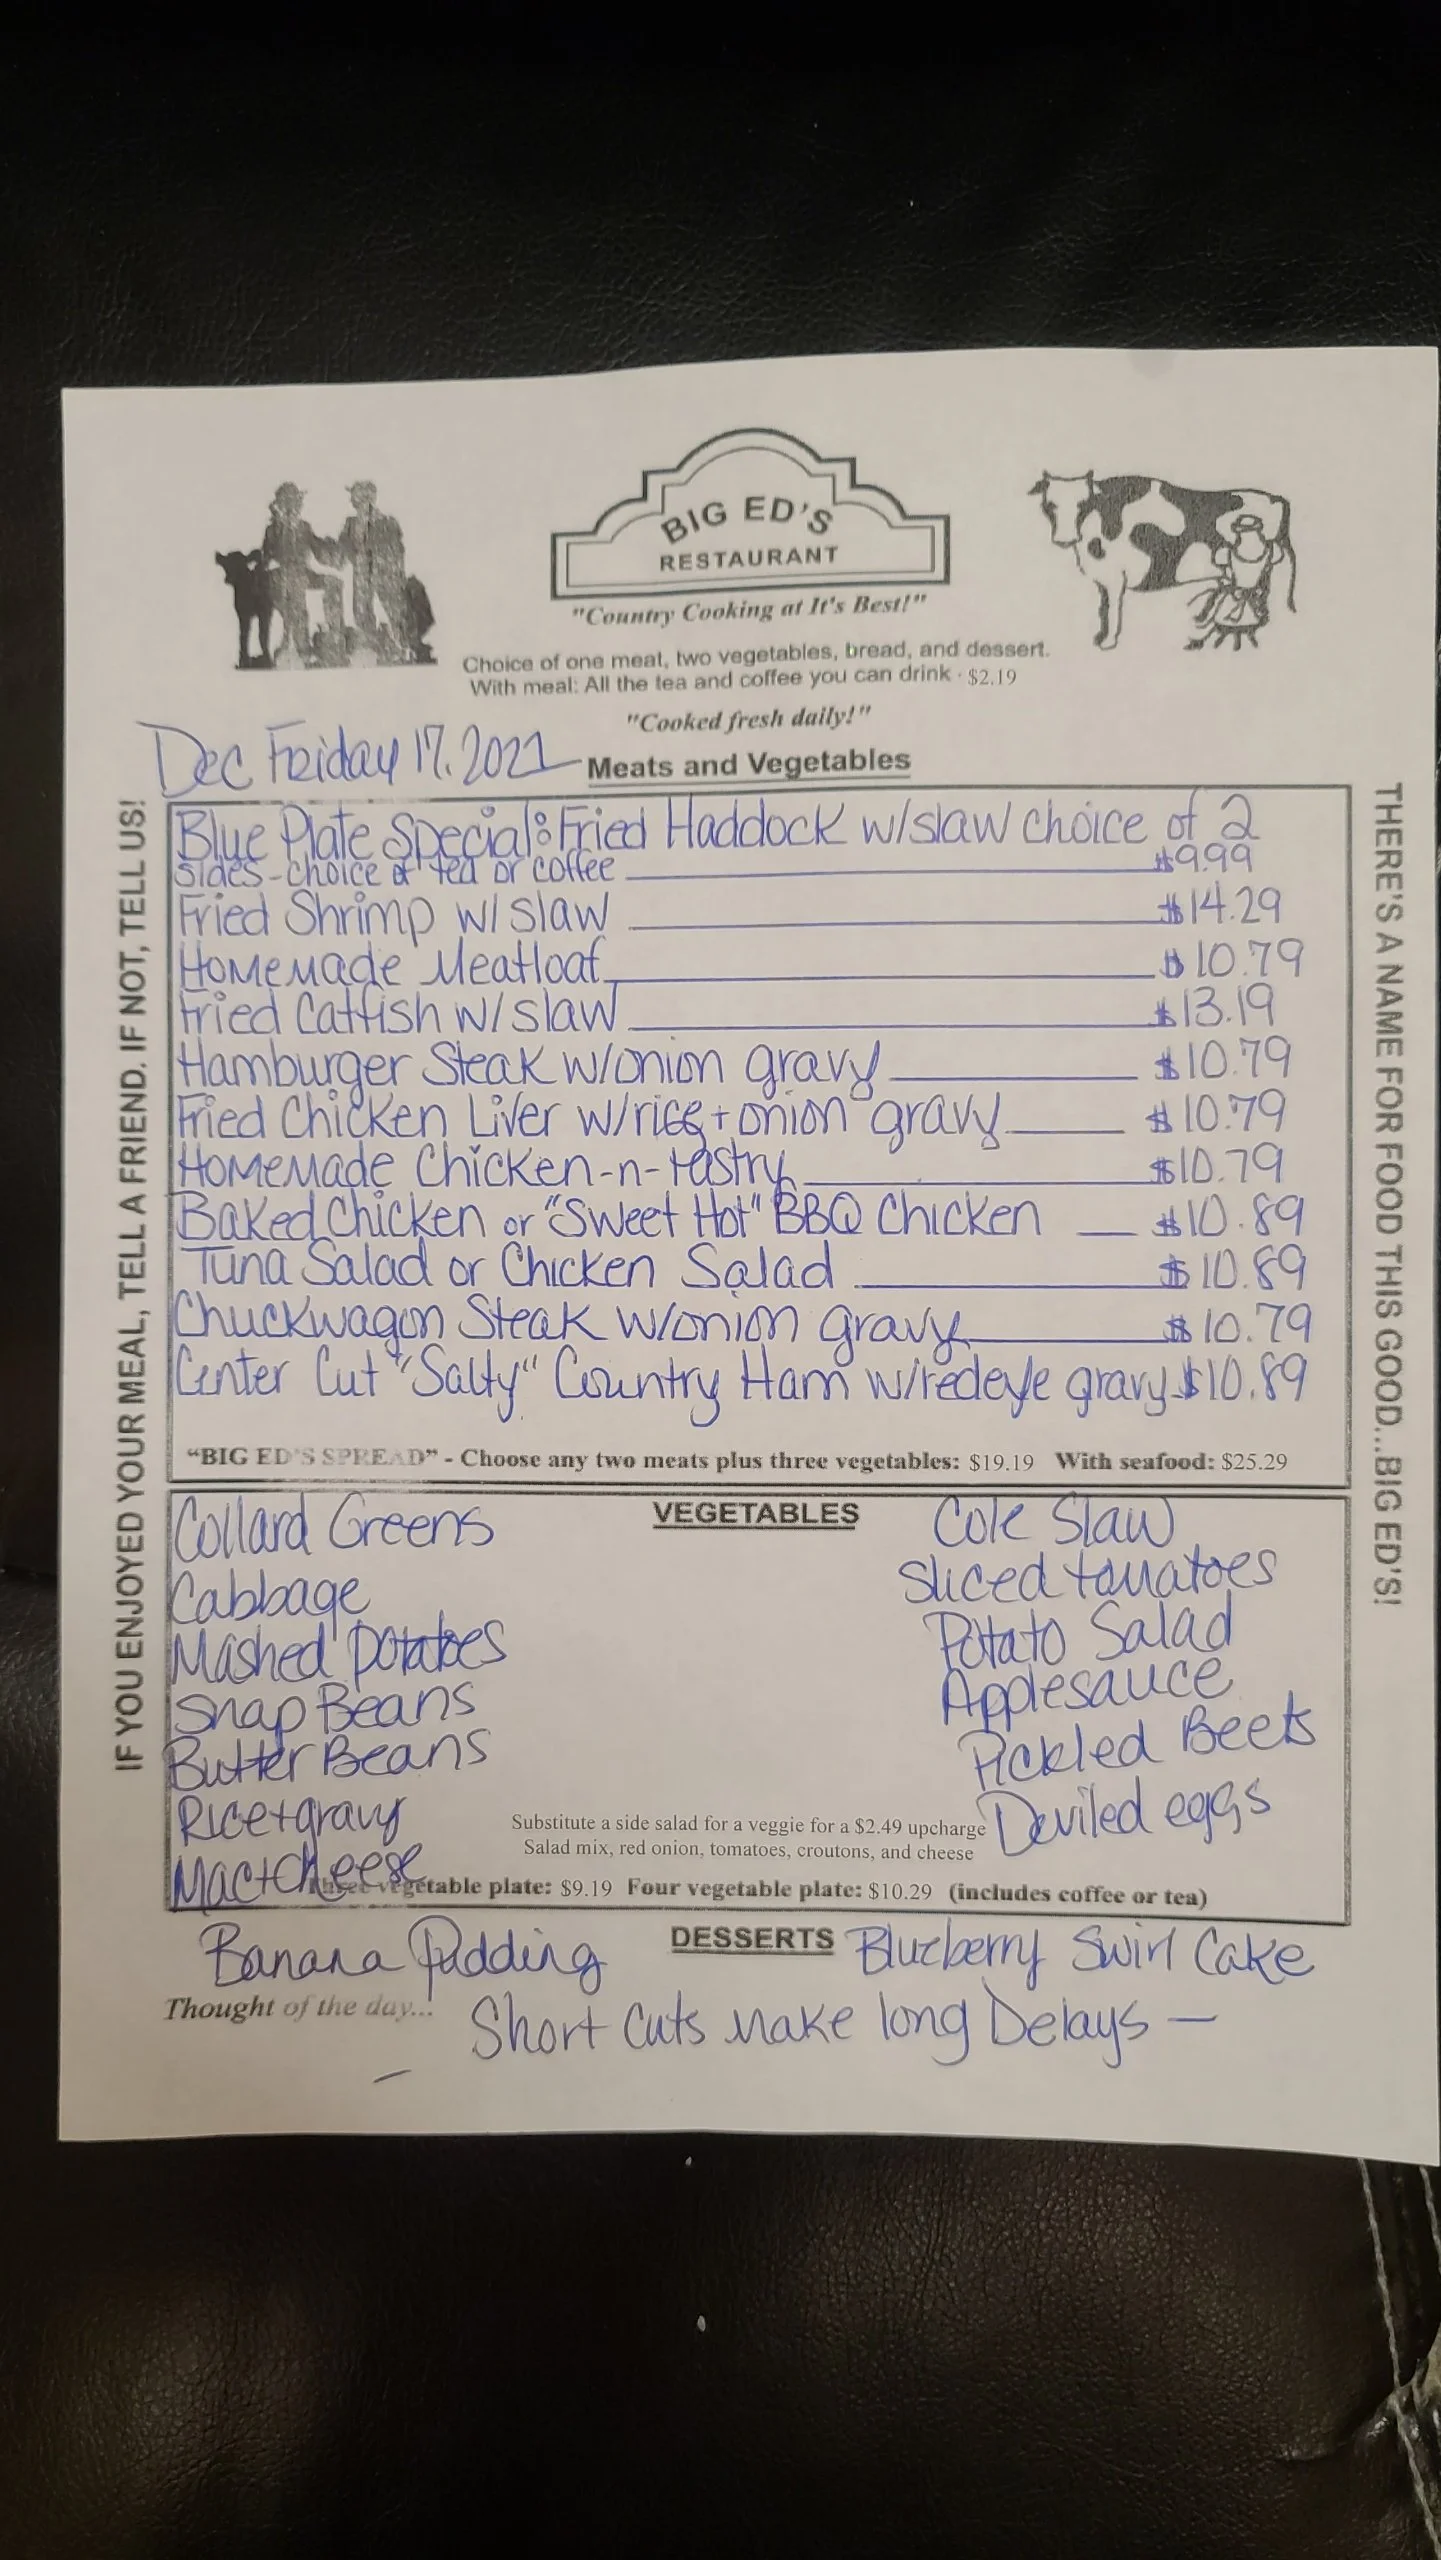 BIG ED'S
RESTAURANT
"Country Cooking at It's Best!"
Choice of one meat, two vegetables, bread, and dessert.
With meal: All the tea and coffee you can drink · $2.19
"Cooked fresh daily!"
Dec Friday 17, 2021
Meats and Vegetables
IF YOU ENJOYED YOUR MEAL, TELL A FRIEND. IF NOT, TELL US!
Blue Plate Special: Fried Haddock w/slaw choice of 2
sides - choice of tea or coffee $9.99
Fried Shrimp w/slaw $14.29
Homemade Meatloaf $10.79
Fried Catfish w/slaw $13.19
Hamburger Steak w/onion gravy $10.79
Fried Chicken Liver w/rice + onion gravy $10.79
Homemade Chicken-n-Pastry $10.79
Baked Chicken or "Sweet Hot" BBQ Chicken $10.89
Tuna Salad or Chicken Salad $10.89
Chuckwagon Steak w/onion gravy $10.79
Center Cut "Salty" Country Ham w/redeye gravy $10.89
"BIG ED'S SPREAD" - Choose any two meats plus three vegetables: $19.19 With seafood: $25.29
THERE'S A NAME FOR FOOD THIS GOOD...BIG ED'S!
VEGETABLES
Collard Greens
Cabbage
Mashed Potatoes
Snap Beans
Butter Beans
Rice + gravy
Mac + Cheese
Cole Slaw
Sliced tomatoes
Potato Salad
Applesauce
Pickled Beets
Deviled eggs
Substitute a side salad for a veggie for a $2.49 upcharge
Salad mix, red onion, tomatoes, croutons, and cheese
Three vegetable plate: $9.19 Four vegetable plate: $10.29 (includes coffee or tea)
DESSERTS
Banana Pudding
Blueberry Swirl Cake
Thought of the day...
Short Cuts make long Delays —